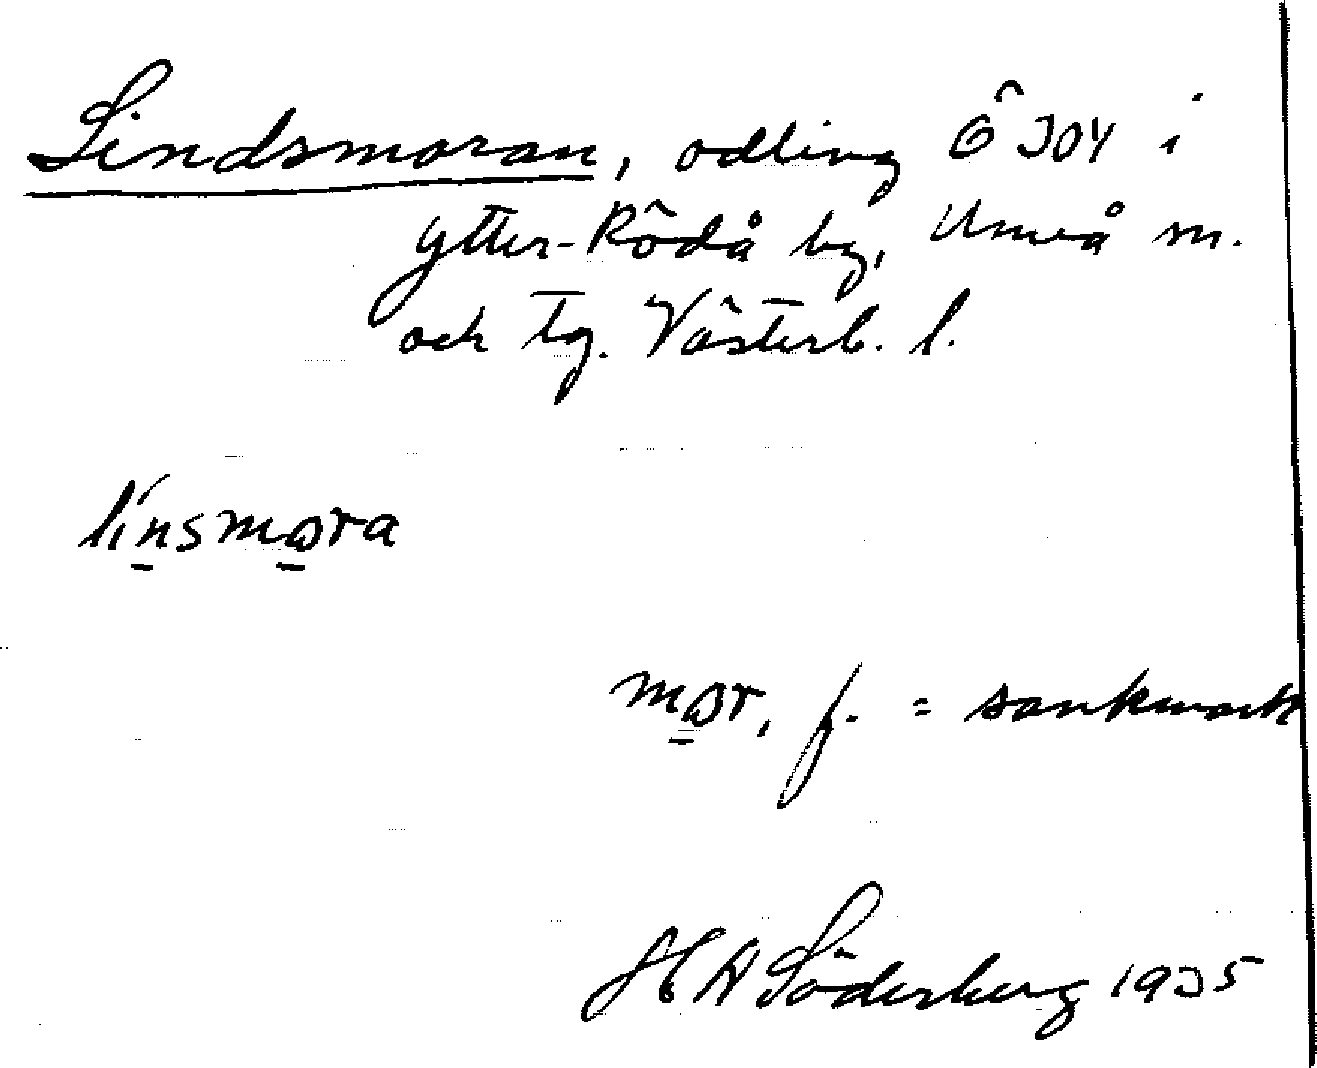 Lindsmoran, odling Ö 304 i
Ytter-Rödå by, Umeå sn.
och tg. Västerb. l.
línsmɷra
mɷr, f. = sankmark
H A Söderberg 1935